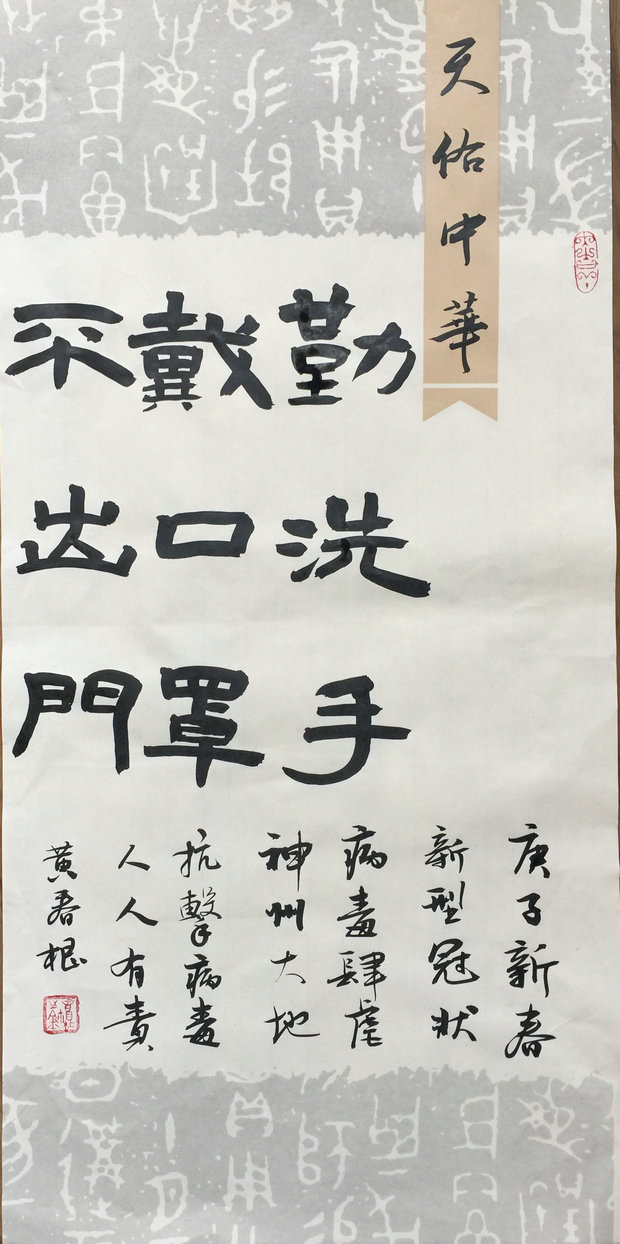 天佑中華
勤洗手
戴口罩
不出門
庚子新春
新型冠狀
病毒肆虐
神州大地
抗擊病毒
人人有責
黄春根